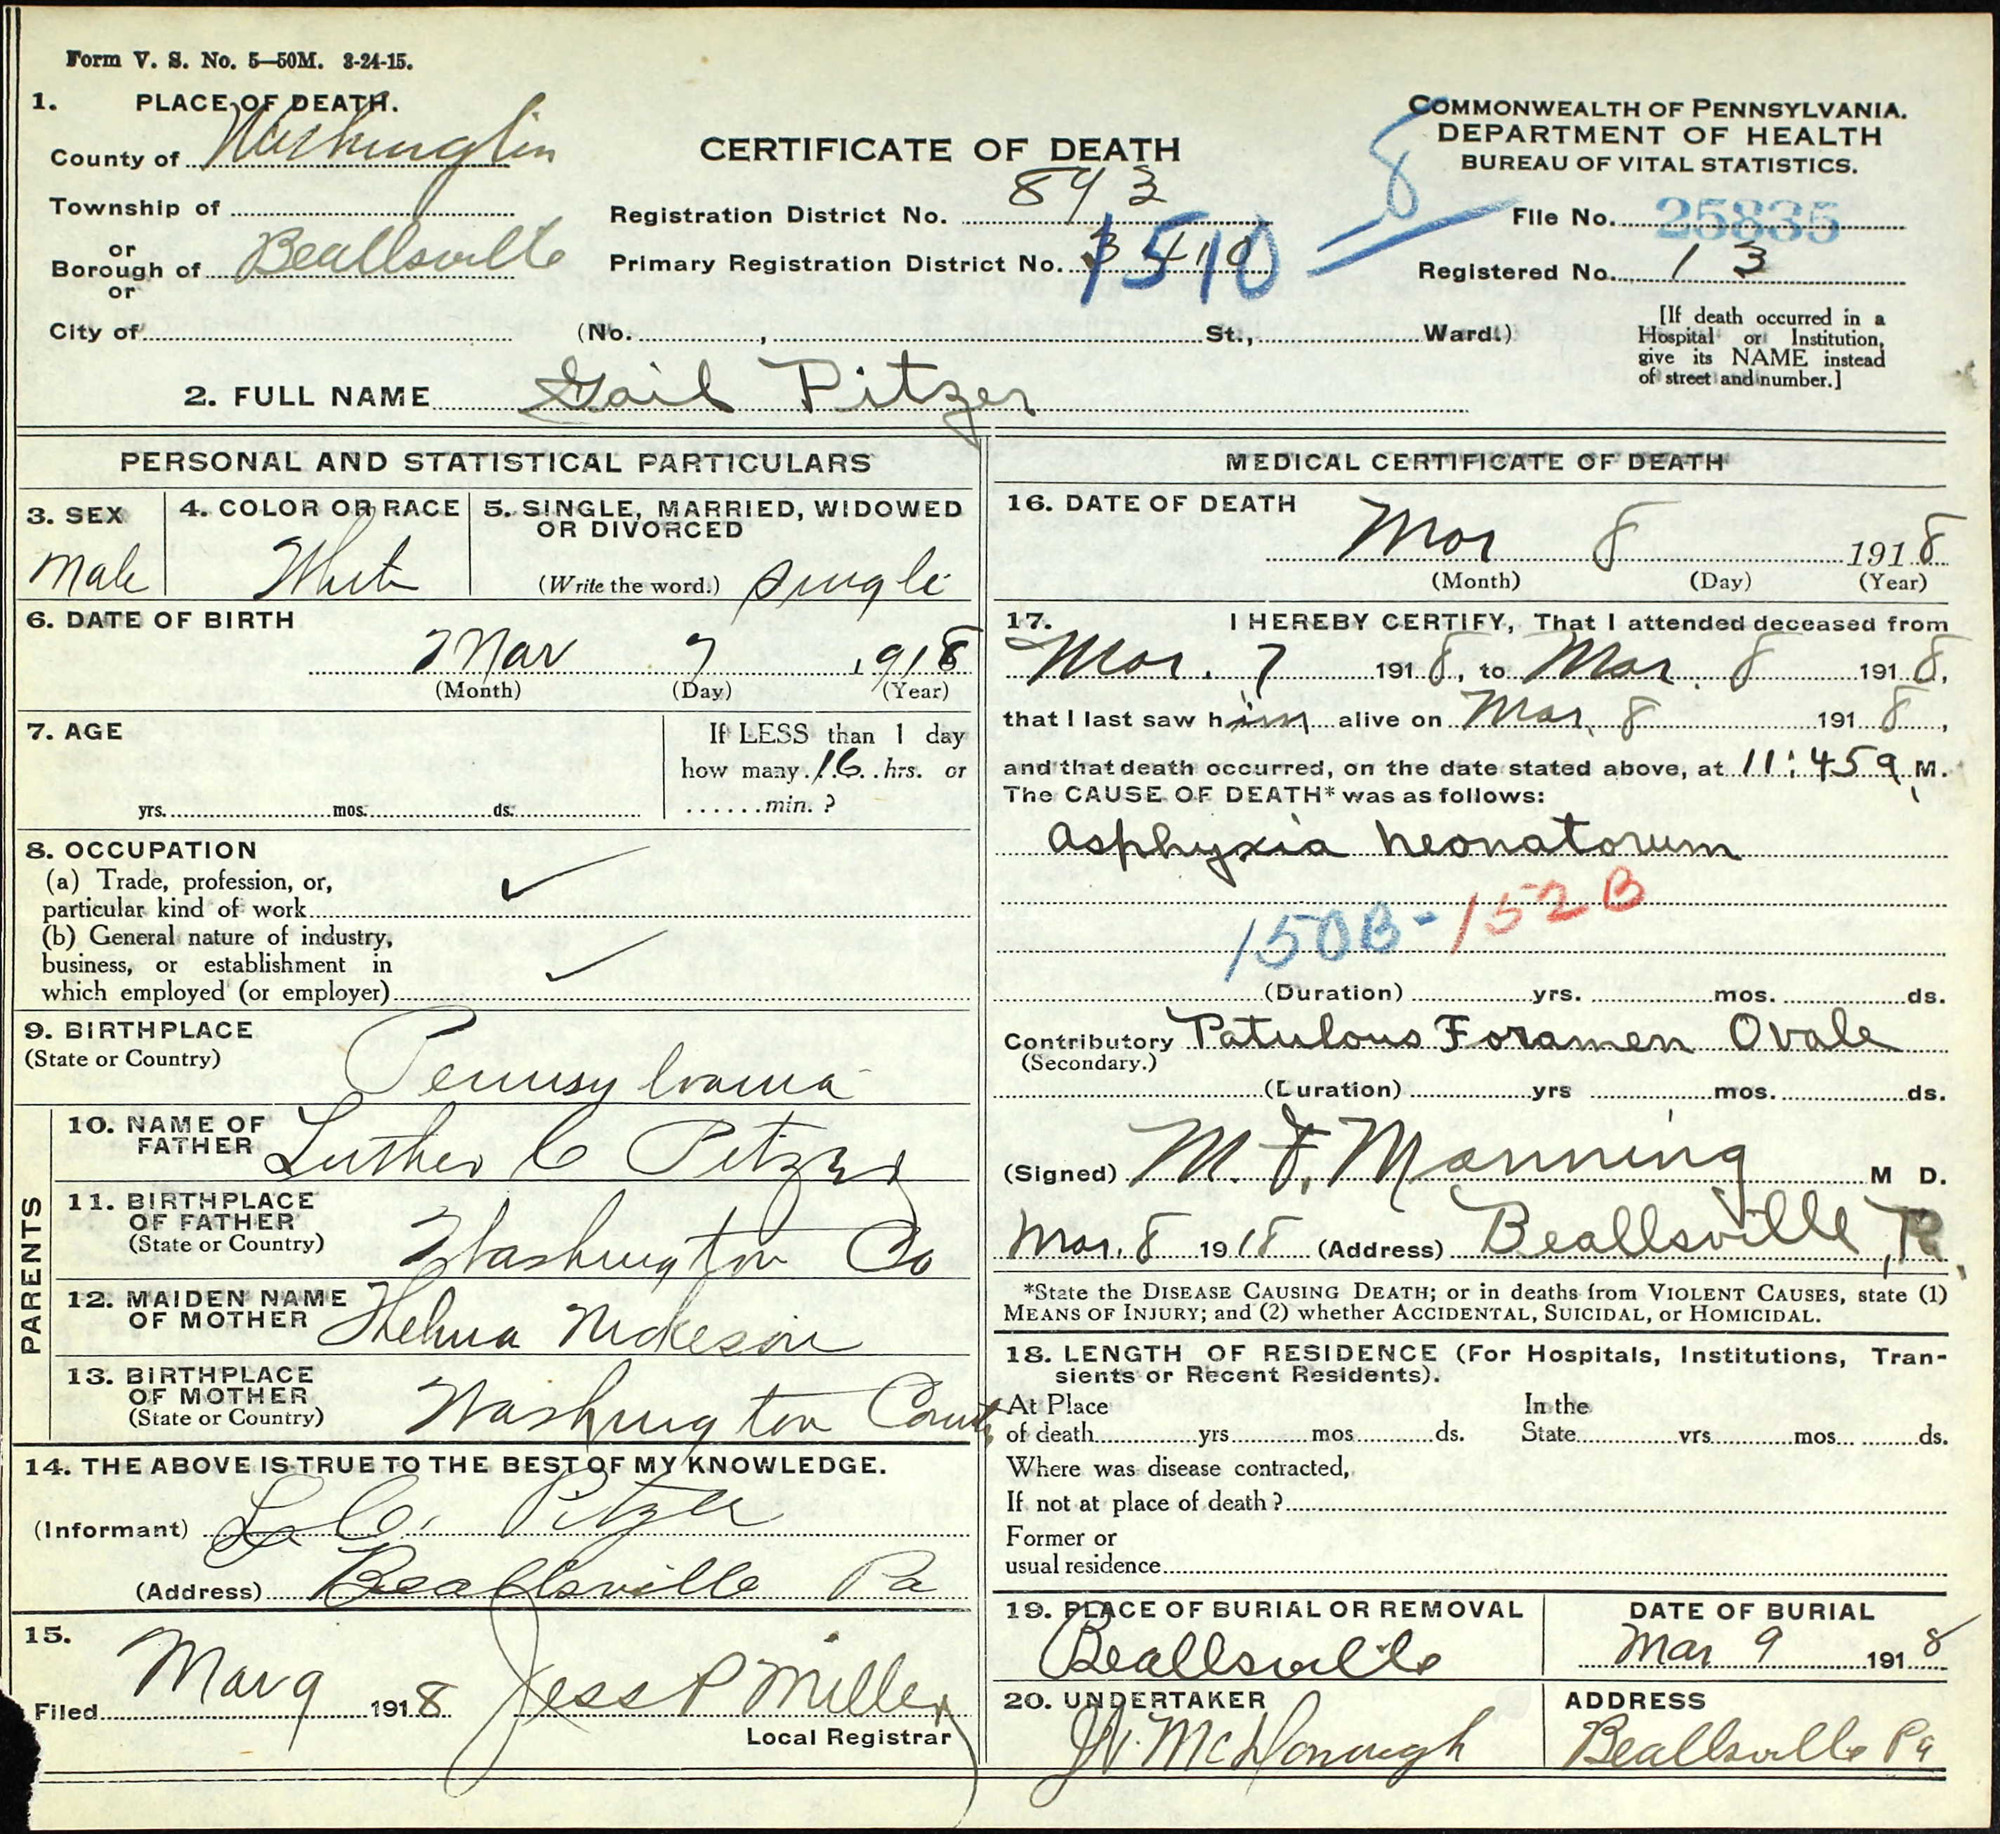 Form V. S. No. 5—50M. 3-24-15.
1. PLACE OF DEATH.
County of Washington
Township of
or
Borough of Beallsville
or
City of (No. , St., Ward.)
CERTIFICATE OF DEATH
Registration District No. 893
Primary Registration District No. 1510
COMMONWEALTH OF PENNSYLVANIA.
DEPARTMENT OF HEALTH
BUREAU OF VITAL STATISTICS.
8
File No. 25835
Registered No. 13
[If death occurred in a
Hospital or Institution,
give its NAME instead
of street and number.]
2. FULL NAME Gail Pitzer
PERSONAL AND STATISTICAL PARTICULARS
3. SEX
Male
4. COLOR OR RACE
White
5. SINGLE, MARRIED, WIDOWED
OR DIVORCED
(Write the word.) Single
6. DATE OF BIRTH
Mar 7 1918
(Month) (Day) (Year)
7. AGE
yrs. mos. ds.
If LESS than 1 day
how many 16 hrs. or
min. ?
8. OCCUPATION
(a) Trade, profession, or,
particular kind of work
(b) General nature of industry,
business, or establishment in
which employed (or employer)
9. BIRTHPLACE
(State or Country)
Pennsylvania
PARENTS
10. NAME OF
FATHER Luther C Pitzer
11. BIRTHPLACE
OF FATHER
(State or Country) Washington Co
12. MAIDEN NAME
OF MOTHER Thelma Nickeson
13. BIRTHPLACE
OF MOTHER
(State or Country) Washington County
14. THE ABOVE IS TRUE TO THE BEST OF MY KNOWLEDGE.
(Informant) L. C. Pitzer
(Address) Beallsville Pa
15.
Filed Mar 9 1918 Jess P Miller
Local Registrar
MEDICAL CERTIFICATE OF DEATH
16. DATE OF DEATH
Mar 8 1918
(Month) (Day) (Year)
17. I HEREBY CERTIFY, That I attended deceased from
Mar. 7 1918, to Mar. 8 1918,
that I last saw him alive on Mar. 8 1918,
and that death occurred, on the date stated above, at 11:45 a M.
The CAUSE OF DEATH* was as follows:
Asphyxia neonatorum
150B - 152B
(Duration) yrs. mos. ds.
Contributory Patulous Foramen Ovale
(Secondary.)
(Duration) yrs mos. ds.
(Signed) M. F. Manning M D.
Mar. 8 1918 (Address) Beallsville, Pa
*State the DISEASE CAUSING DEATH; or in deaths from VIOLENT CAUSES, state (1)
MEANS OF INJURY; and (2) whether ACCIDENTAL, SUICIDAL, or HOMICIDAL.
18. LENGTH OF RESIDENCE (For Hospitals, Institutions, Tran-
sients or Recent Residents).
At Place In the
of death yrs mos ds. State yrs mos ds.
Where was disease contracted,
If not at place of death ?
Former or
usual residence
19. PLACE OF BURIAL OR REMOVAL
Beallsville
DATE OF BURIAL
Mar 9 1918
20. UNDERTAKER
J. V. McDonough
ADDRESS
Beallsville Pa